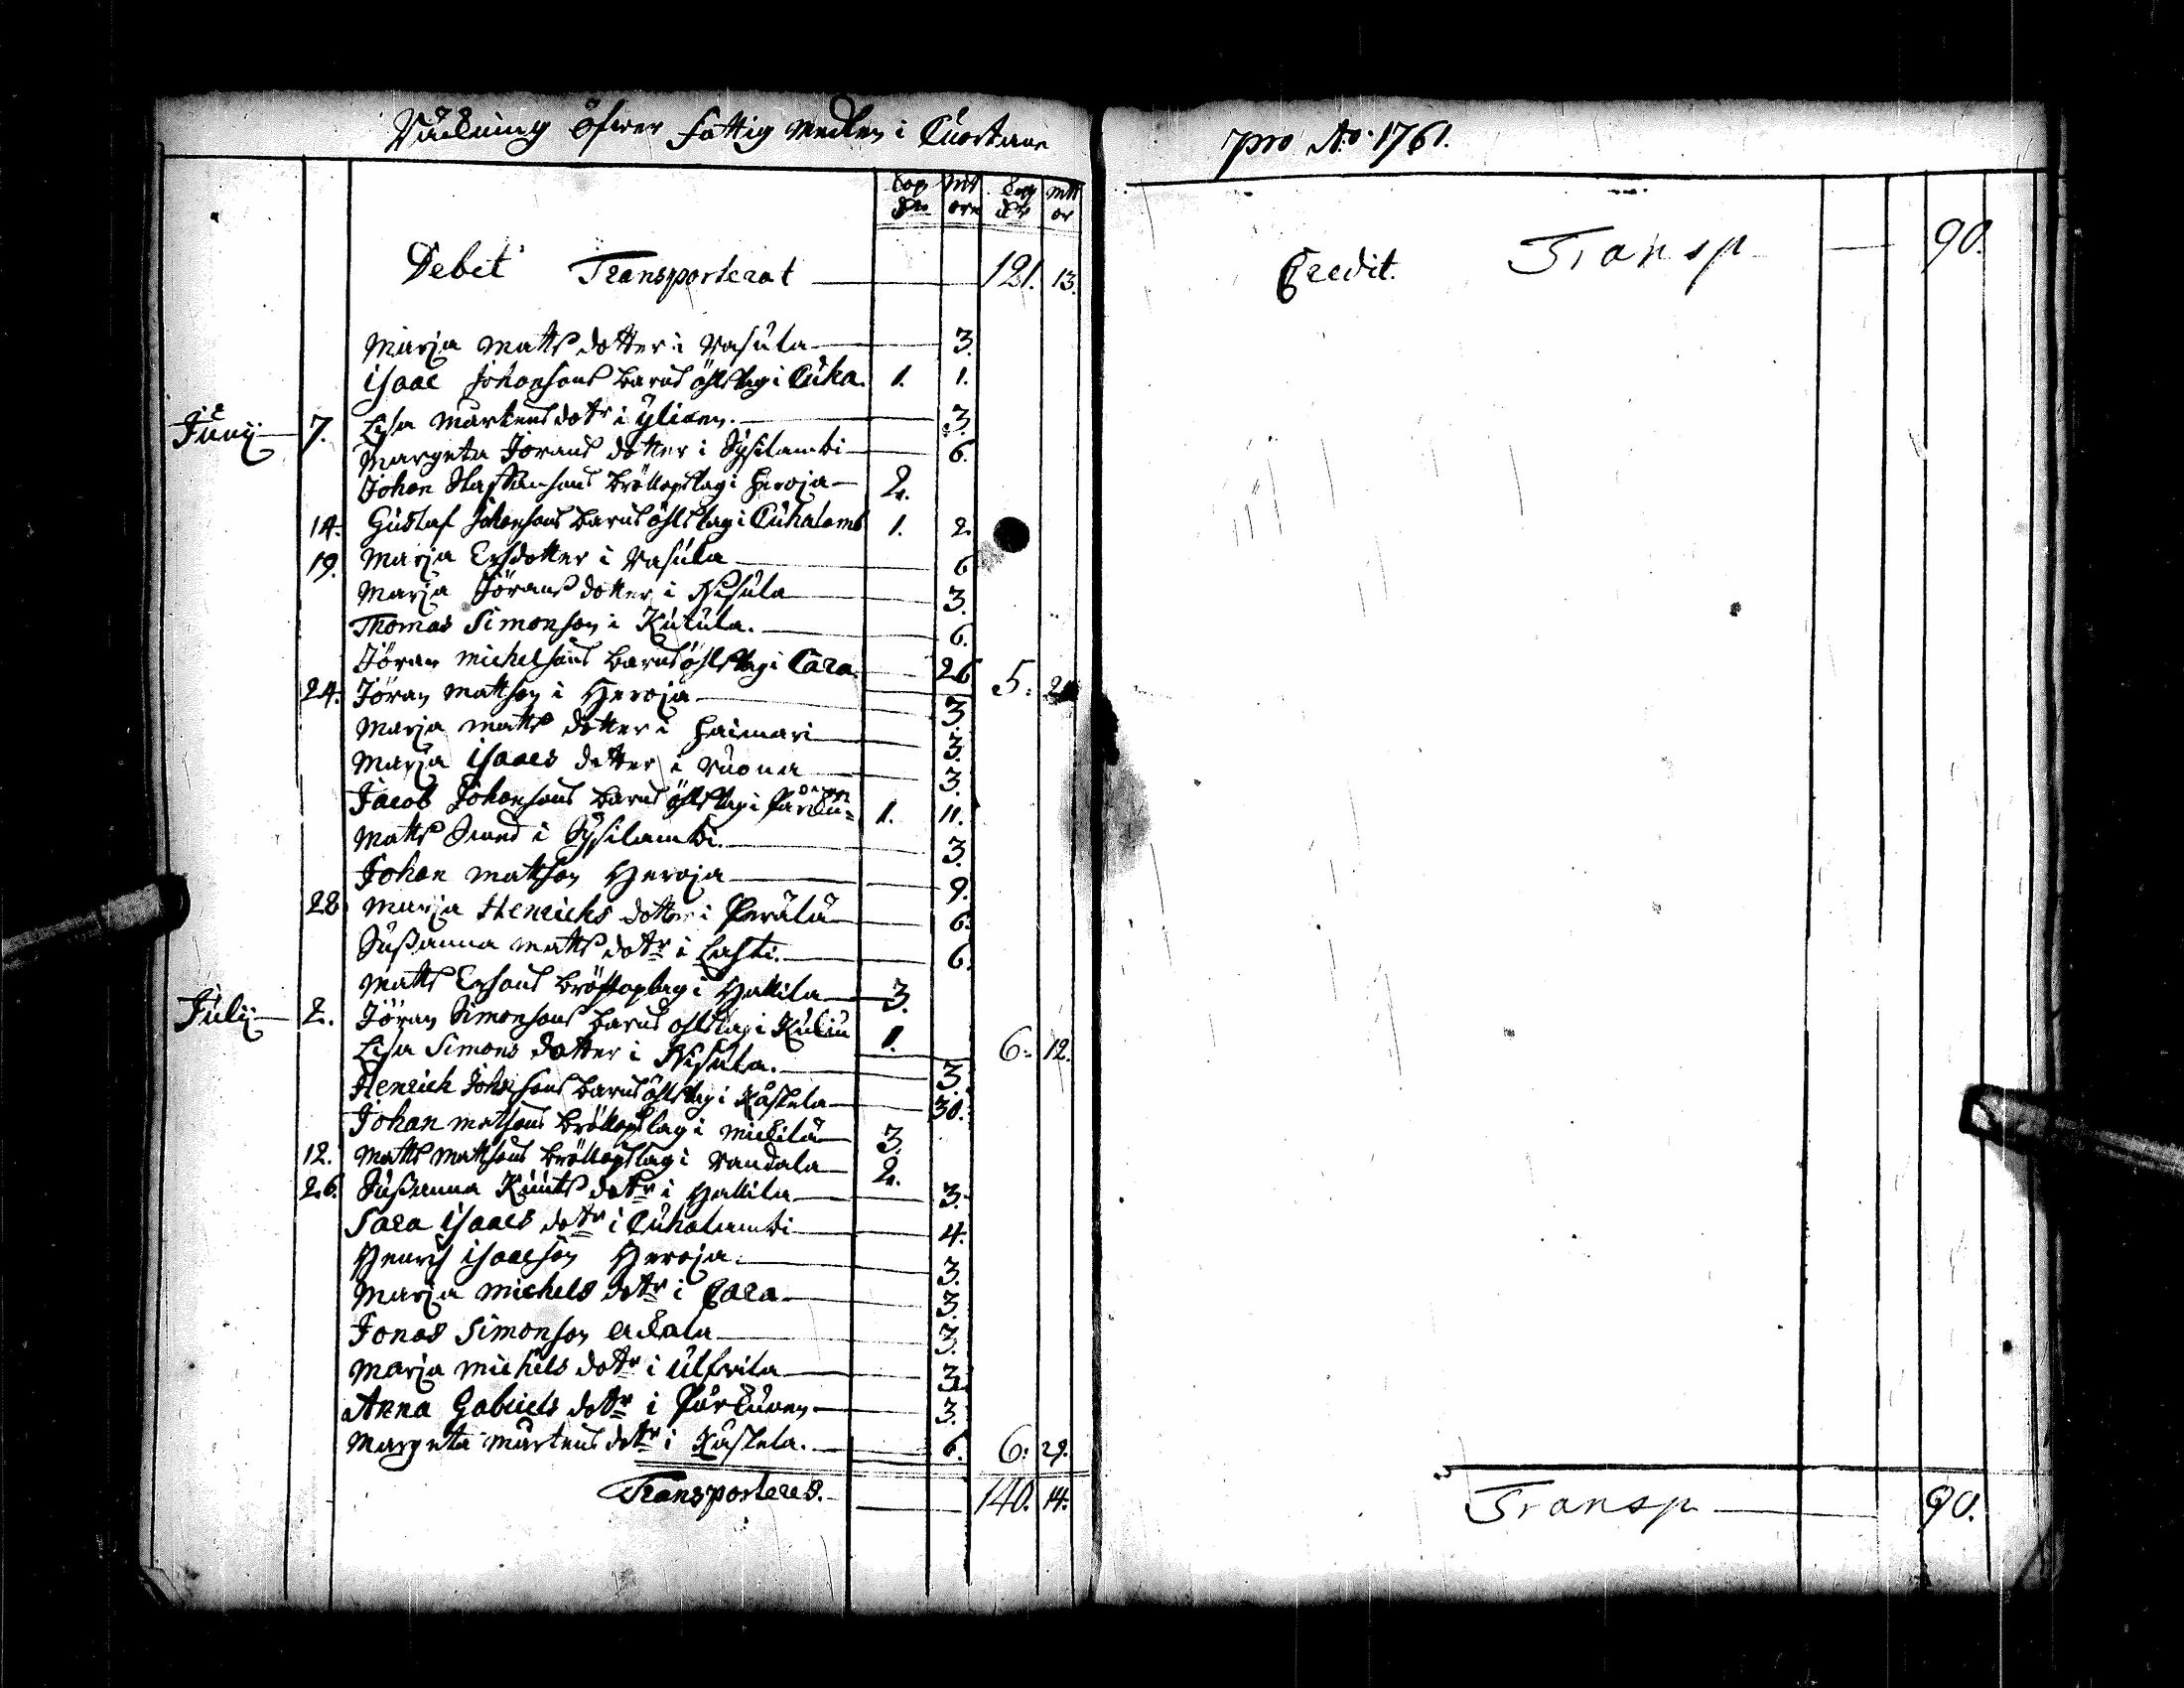 Räckning öfwer fattig medlen i Cuortane
pro A:o 1761.
Kop mtt Kop mtt
dr öre dr ör
Debet Transporterat 121. 13.
Marja Matts dotter i Rasula 3.
Isaac Johansons barns öhlslag i Cuha. 1. 1.
Junij 7. Lisa Mårtens dotr i Ylinen. 3.
Margeta Jörans dotter i Sysilambi 6.
Johan Staffansons bröllopslag i Heroja 2.
14. Gustaf Johansons barns öhlslag i Cuhalamb 1. 2.
19. Marja Ersdotter i Rasula 6
Marja Jörans dotter i Nisula 3.
Thomas Simonson i Kutula. 6.
Jöran Michelsons barns öhlslag i Cara 26 5: 2
24. Jöran Mattson i Heroja 3.
Marja Matts dotter i Haimari 3.
Marja Isaacs dotter i Ruona 3.
Jacob Johansons barns öhlslag i Pärku= 1. 11.
Matts i Sysilambi. 3.
Johan Mattson Heroja 9.
28 Marja Henrichs dotter i Perälä 6.
Sußanna Matts dotr i Lasti. 6.
Matts Ersons bröllopslag i Hallila 3.
Julij 2. Jöran Simonsons barns öhlslag i 1. 6: 12.
Lisa Simons dotter i Nisula. 3.
Henrich Johansons barns öhlslag i Kåskela 30.
Johan Matsons bröllopslag i Mickilä 3.
12. Matts Mattsons bröllopslag i Randala 2.
26. Sußanna Knuts dotr i Hallila 3.
Sara Isaacs dotr i Cuhalambi 4.
Henrich Isaacson Heroja 3.
Marja Michels dotr i Cara 3.
Jonas Simonson Ackala 3.
Marja Michels dotr i Ulfvila 3.
Anna Gabriels dotr i Pärkunen. 3.
Margeta Mårtens dotr i Kåskela. 6. 6: 29.
Transporteres. 140. 14.
Credit. Transp 90.
Transp 90.